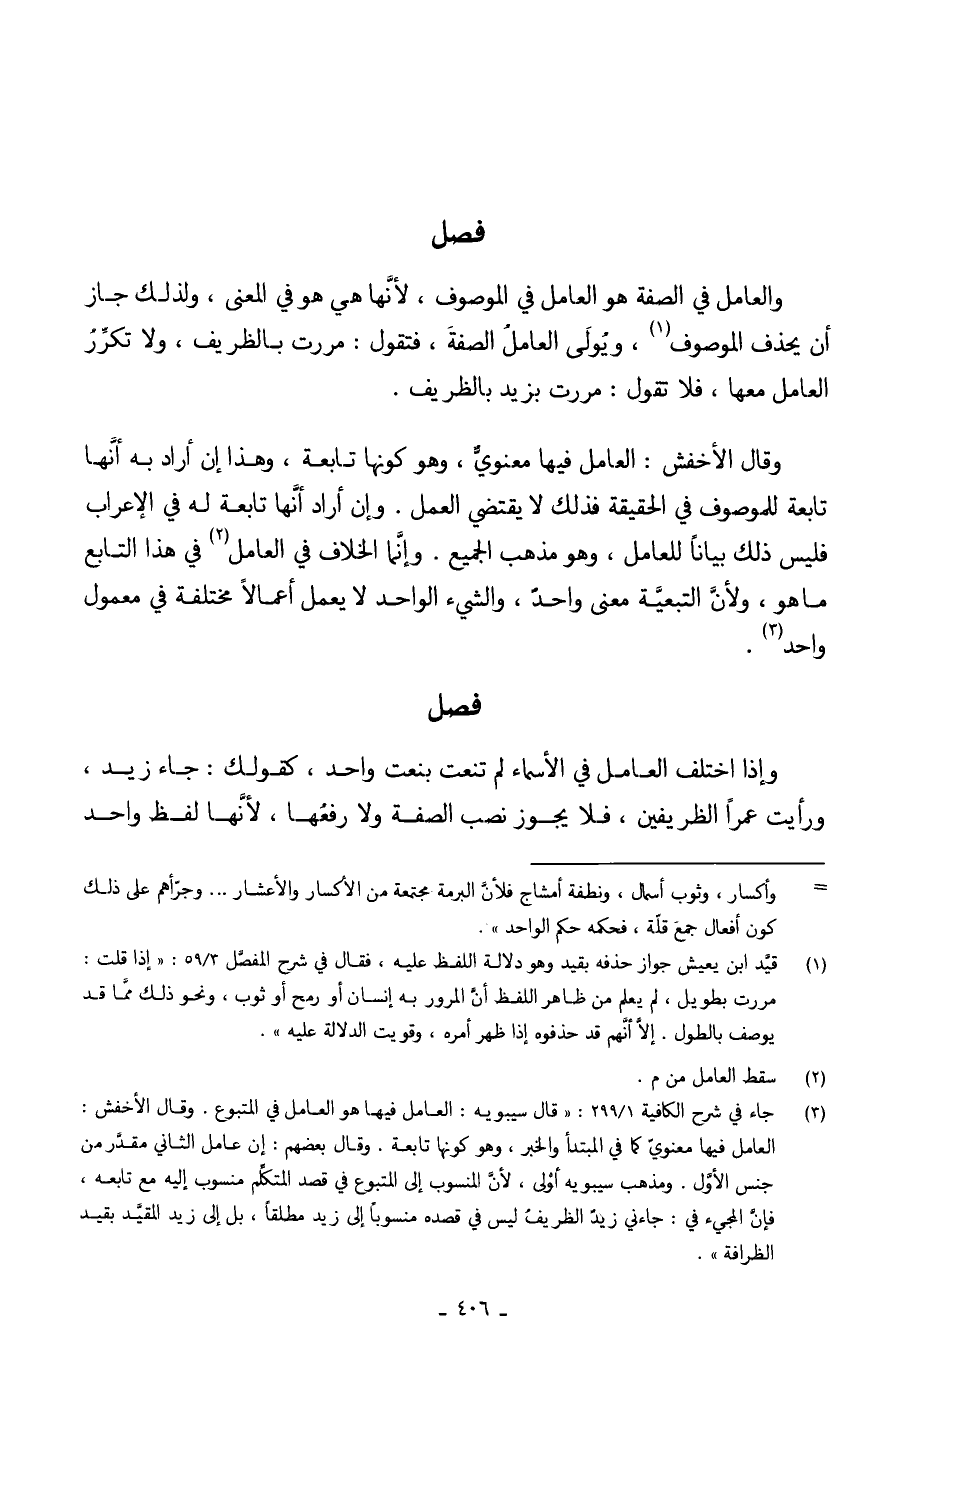 فصل
والعامل في الصفة هو العامل في الموصوف ، لأنَّها هي هو في المعنى ، ولذلك جاز
أن يحذف الموصوف(١) ، ويُولَى العاملُ الصفةَ ، فتقول : مررت بالظريف ، ولا تكرِّرُ
العامل معها ، فلا تقول : مررت بزيد بالظريف .
وقال الأخفش : العامل فيها معنويٌّ ، وهو كونها تابعة ، وهذا إن أراد به أنَّها
تابعة للموصوف في الحقيقة فذلك لا يقتضي العمل . وإن أراد أنَّها تابعة له في الإعراب
فليس ذلك بياناً للعامل ، وهو مذهب الجميع . وإنَّما الخلاف في العامل(٢) في هذا التابع
ماهو ، ولأنَّ التبعيَّة معنى واحدّ ، والشيء الواحد لا يعمل أعمالاً مختلفة في معمول
واحد(٣) .
فصل
وإذا اختلف العامل في الأسماء لم تنعت بنعت واحد ، كقولك : جاء زيد ،
ورأيت عمراً الظريفين ، فلا يجوز نصب الصفة ولا رفعُها ، لأنَّها لفظ واحد
= وأكسار ، وثوب أسمال ، ونطفة أمشاج فلأنَّ البرمة مجتمعة من الأكسار والأعشار ... وجرّأهم على ذلك
كون أفعال جمعَ قلّة ، فحكمه حكم الواحد » .
(١) قيَّد ابن يعيش جواز حذفه بقيد وهو دلالة اللفظ عليه ، فقال في شرح المفصَّل ٥٩/٣ : « إذا قلت :
مررت بطويل ، لم يعلم من ظاهر اللفظ أنَّ المرور به إنسان أو رمح أو ثوب ، ونحو ذلك ممَّا قد
يوصف بالطول . إلاَّ أنَّهم قد حذفوه إذا ظهر أمره ، وقويت الدلالة عليه » .
(٢) سقط العامل من م .
(٣) جاء في شرح الكافية ٢٩٩/١ : « قال سيبويه : العامل فيها هو العامل في المتبوع . وقال الأخفش :
العامل فيها معنويّ كما في المبتدأ والخبر ، وهو كونها تابعة . وقال بعضهم : إن عامل الثاني مقدَّر من
جنس الأوَّل . ومذهب سيبويه أوْلى ، لأنَّ المنسوب إلى المتبوع في قصد المتكلِّم منسوب إليه مع تابعه ،
فإنَّ المجيء في : جاءني زيدّ الظريفُ ليس في قصده منسوباً إلى زيد مطلقاً ، بل إلى زيد المقيَّد بقيد
الظرافة » .
- ٤٠٦ -